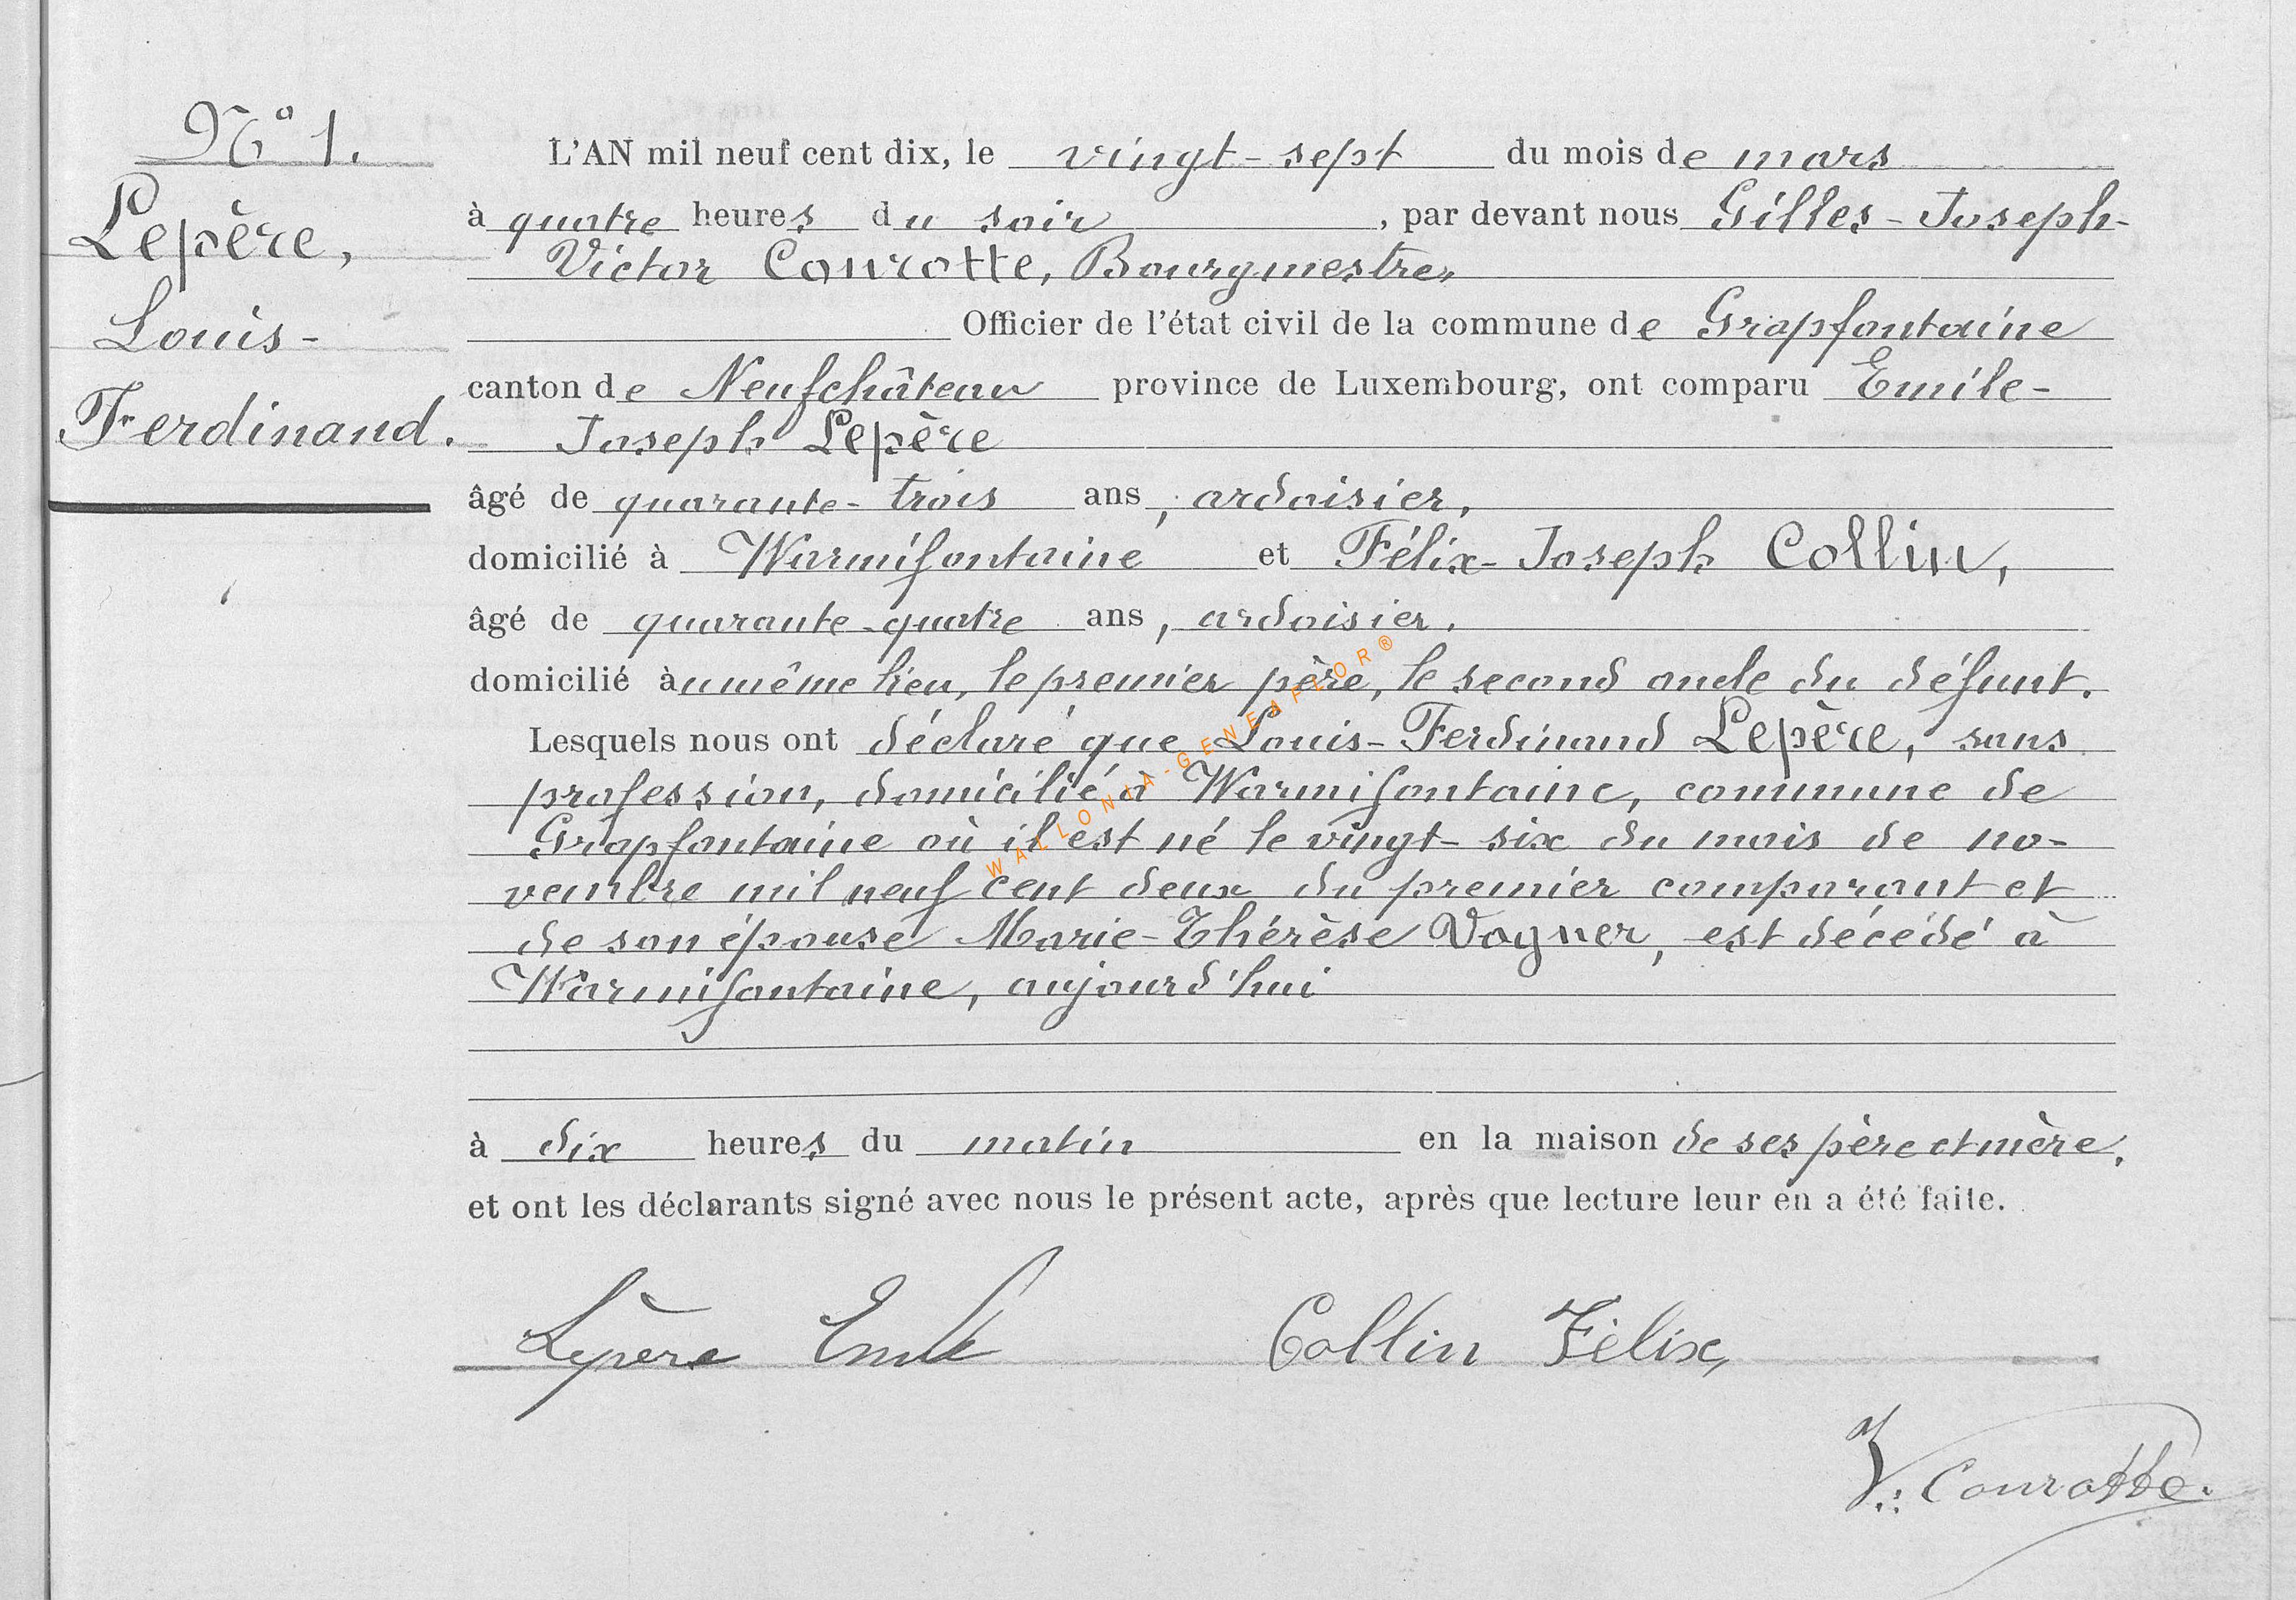 N° 1.
Lepère,
Louis-
Ferdinand.
L'AN mil neuf cent dix, le vingt-sept du mois de mars
à quatre heures du soir, par devant nous Gilles-Joseph-
Victor Conrotte, Bourgmestre,
Officier de l'état civil de la commune de Grapfontaine
canton de Neufchâteau province de Luxembourg, ont comparu Emile-
Joseph Lepère
âgé de quarante-trois ans, ardoisier,
domicilié à Warmifontaine et Félix-Joseph Collin,
âgé de quarante-quatre ans, ardoisier,
domicilié au même lieu, le premier père, le second oncle du défunt.
Lesquels nous ont déclaré que Louis-Ferdinand Lepère, sans
profession, domicilié à Warmifontaine, commune de
Grapfontaine où il est né le vingt-six du mois de no-
vembre mil neuf cent deux du premier comparant et
de son épouse Marie-Thérèse Wagner, est décédé à
Warmifontaine, aujourd'hui
à dix heures du matin en la maison de ses père et mère,
et ont les déclarants signé avec nous le présent acte, après que lecture leur en a été faite.
Lepère Emile Collin Félix,
V. Conrotte.
WALLONIA-GENEAFLOR®